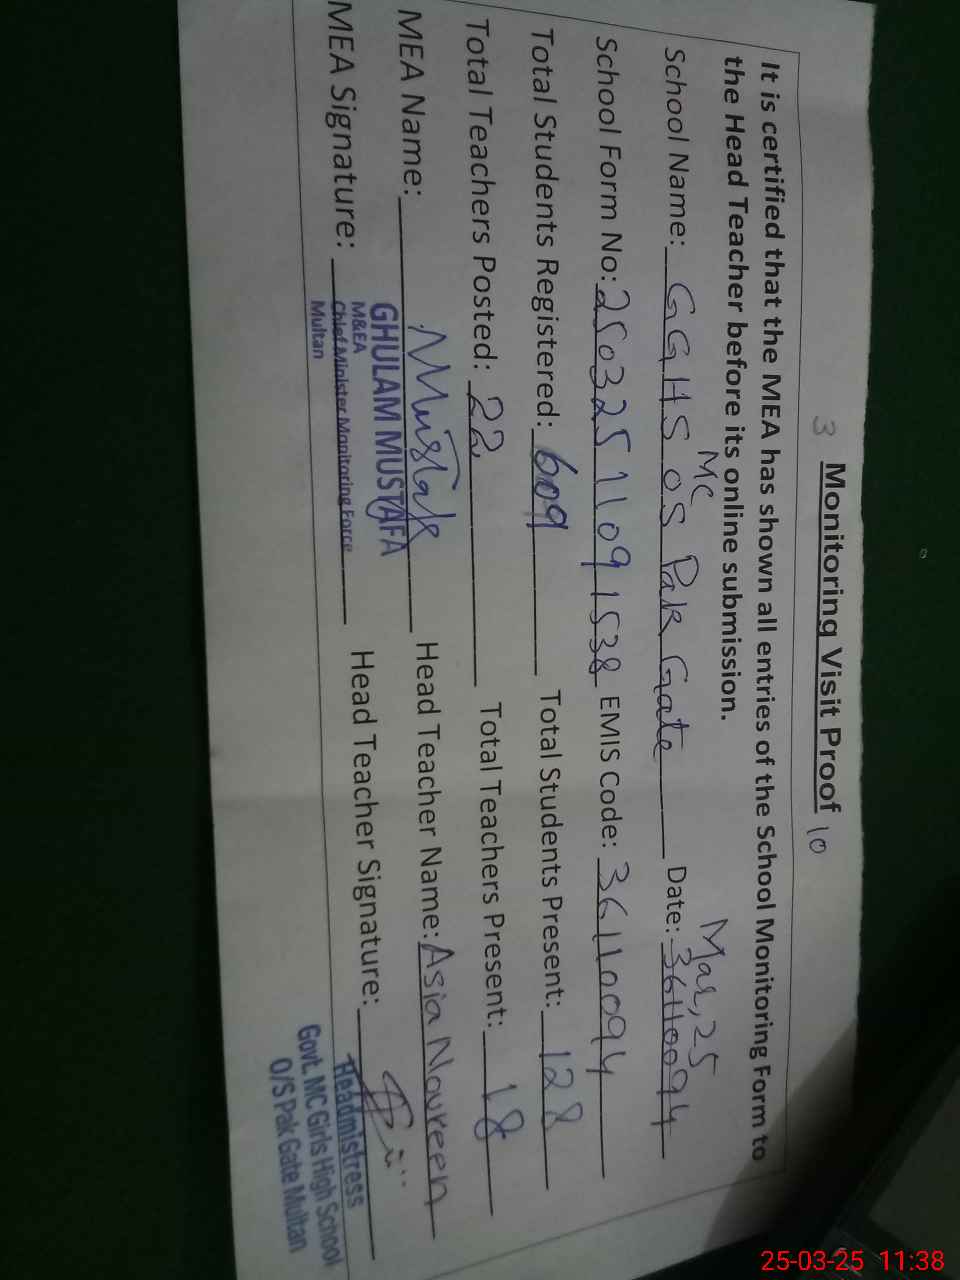 3 Monitoring Visit Proof 10
It is certified that the MEA has shown all entries of the School Monitoring Form to
the Head Teacher before its online submission.
MC Mar, 25
School Name: GGHS OS Pak Gate Date: 36110094
School Form No: 25032511091538 EMIS Code: 36110094
Total Students Registered: 609 Total Students Present: 128
Total Teachers Posted: 22 Total Teachers Present: 18
MEA Name: Mustafa Head Teacher Name: Asia Noureen
GHULAM MUSTAFA
MEA Signature: Head Teacher Signature:
M&EA
Chief Minister Monitoring Force
Multan
Headmistress
Govt. MC Girls High School
O/S Pak Gate Multan
25-03-25 11:38